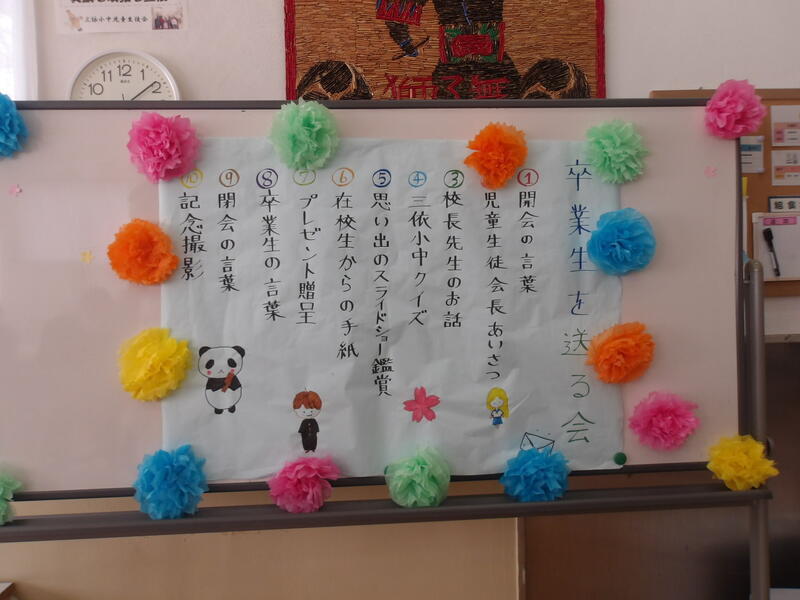 三依小中児童生徒会
12
11
1
10
2
獅子舞
卒業生を送る会
①開会の言葉
②児童生徒会長あいさつ
③校長先生のお話
④三依小中クイズ
⑤思い出のスライドショー鑑賞
⑥在校生からの手紙
⑦プレゼント贈呈
⑧卒業生の言葉
⑨閉会の言葉
⑩記念撮影